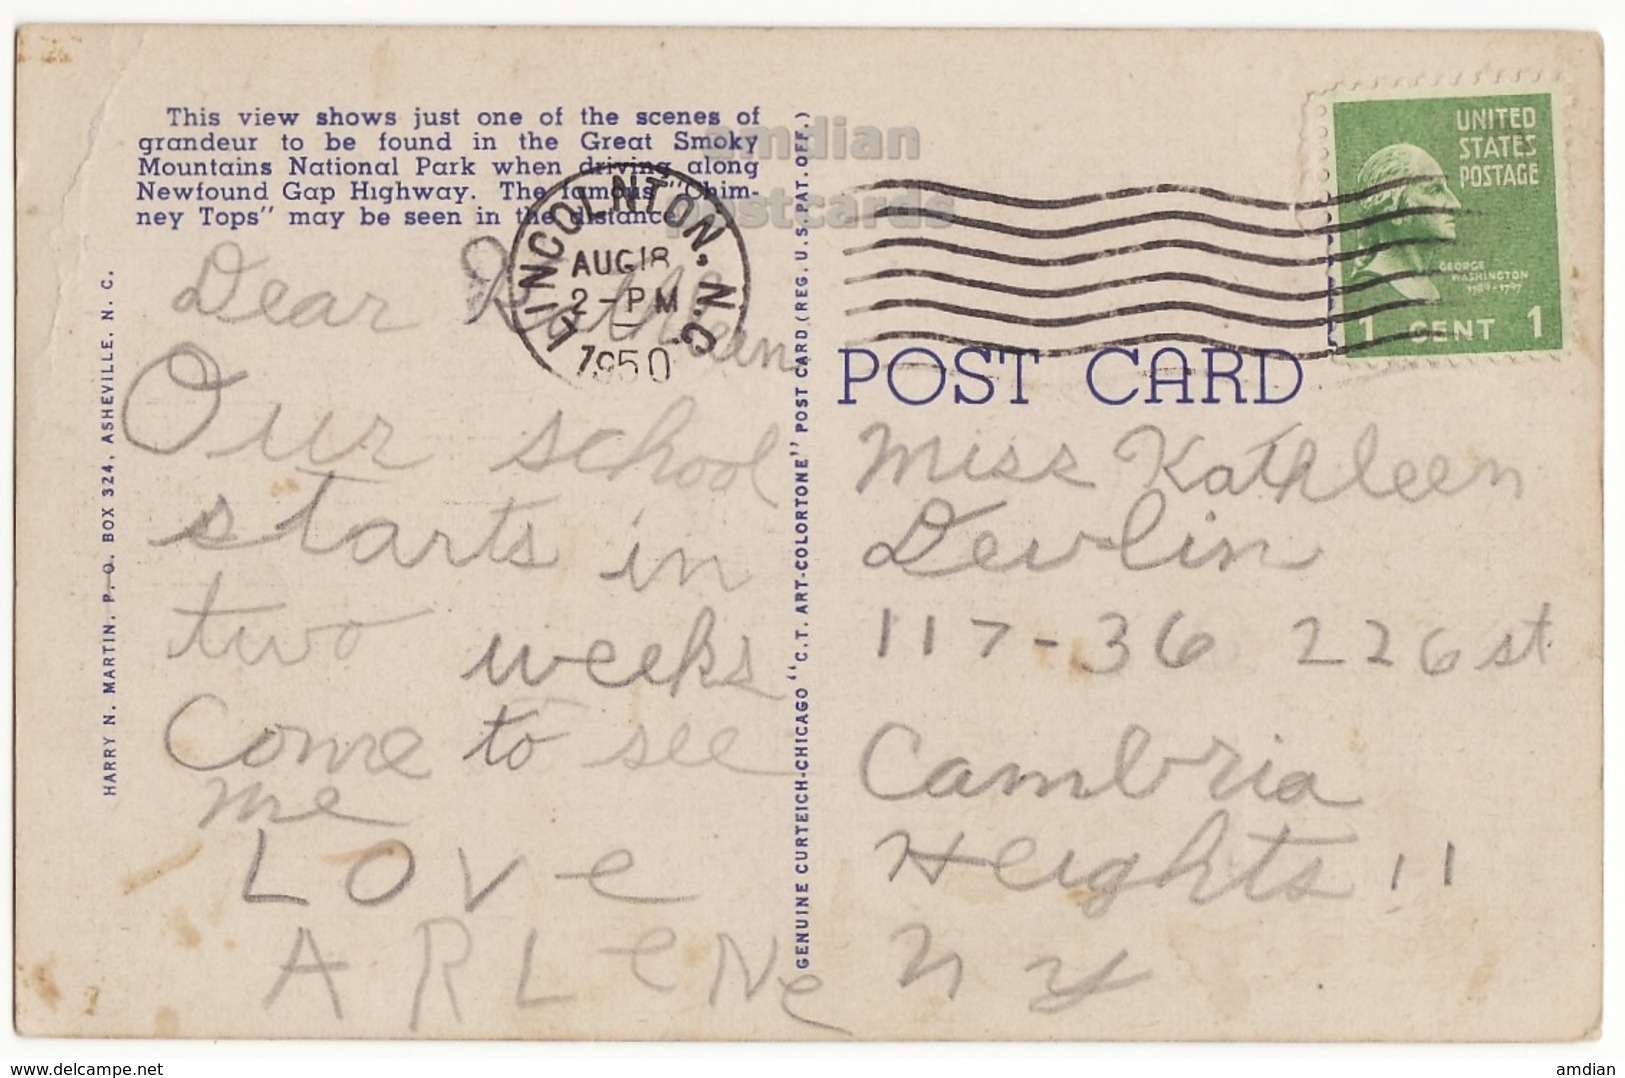 This view shows just one of the scenes of
grandeur to be found in the Great Smoky
Mountains National Park when driving along
Newfound Gap Highway. The famous "Chim-
ney Tops" may be seen in the distance.
amdian
postcards
LINCOLNTON, N.C.
AUG 18
2-PM
1950
UNITED
STATES
POSTAGE
GEORGE
WASHINGTON
1789-1797
1 CENT 1
HARRY N. MARTIN, P. O. BOX 324, ASHEVILLE, N. C.
Dear Kathleen
Our school
starts in
two weeks
Come to see
me
LOVe
ARLeNe
GENUINE CURTEICH-CHICAGO "C.T. ART-COLORTONE" POST CARD (REG. U.S. PAT. OFF.)
POST CARD
Miss Kathleen
Devlin
117-36 226 st
Cambria
Heights 11
N Y
www.delcampe.net
amdian